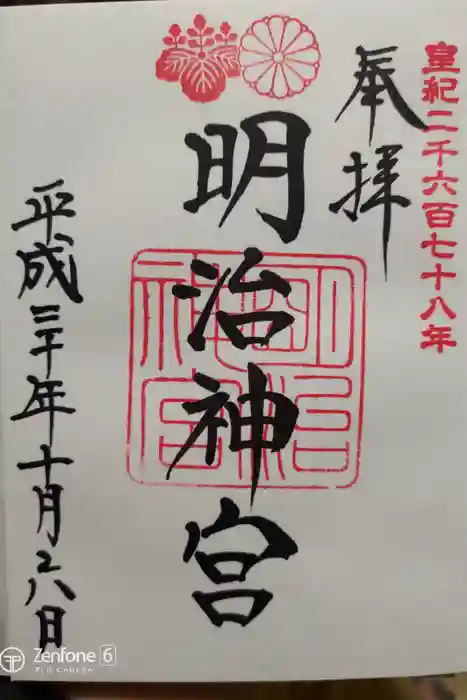 皇紀二千六百七十八年
奉拝
明治神宮
明治
神宮
平成三十年十月二八日
Zenfone 6
FLIP CAMERA